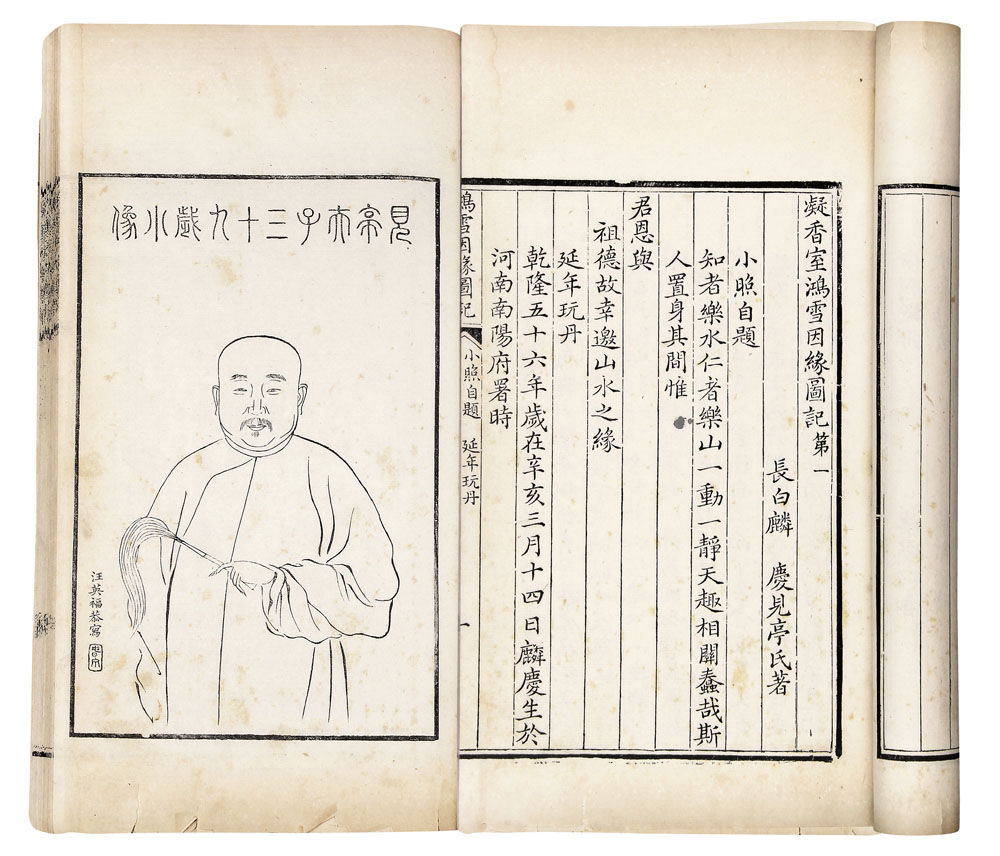 凝香室鴻雪因緣圖記第一
長白麟　慶見亭氏著
小照自題
知者樂水仁者樂山一動一靜天趣相關蠢哉斯
人置身其間惟
君恩與
祖德故幸邀山水之緣
延年玩丹
乾隆五十六年歲在辛亥三月十四日麟慶生於
河南南陽府署時
鴻雪因緣圖記　小照自題　延年玩丹　一
見亭夫子三十九歲小像
汪英福恭寫